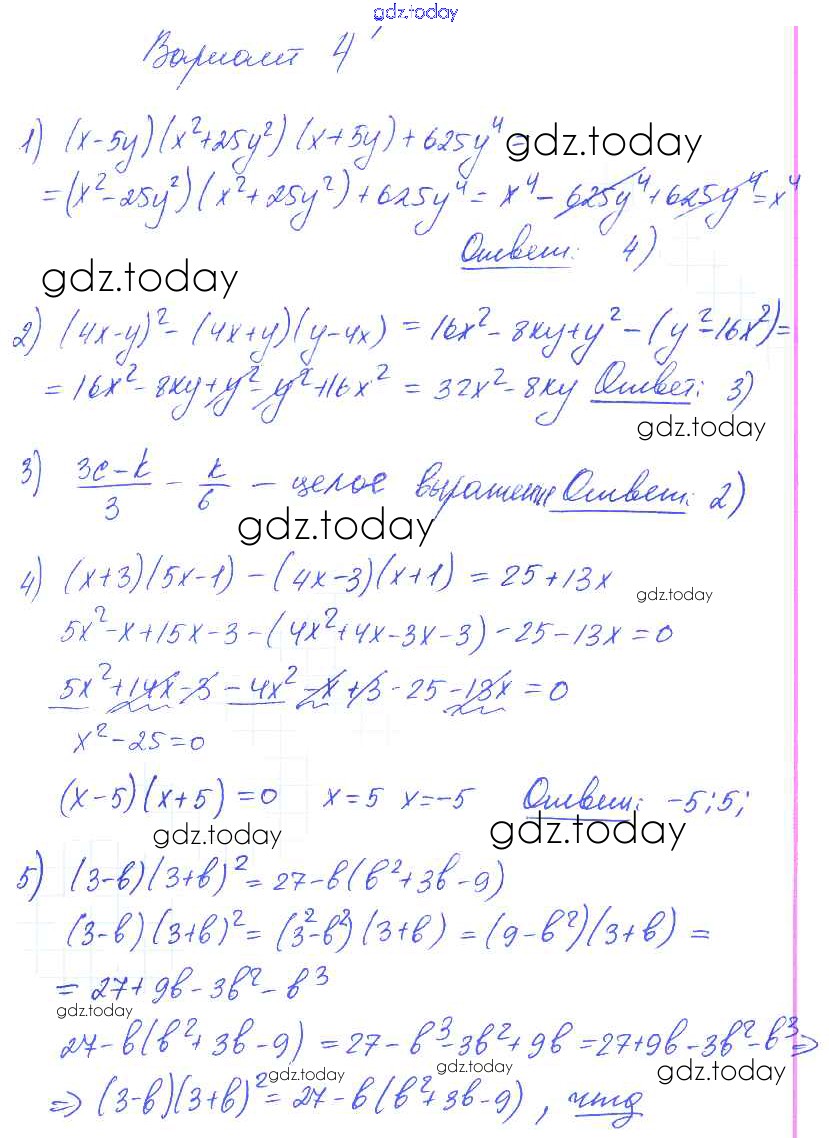 gdz.today
Вариант 4
1) (x-5y)(x²+25y²)(x+5y)+625y⁴ = gdz.today
=(x²-25y²)(x²+25y²)+625y⁴= x⁴-625y⁴+625y⁴=x⁴
Ответ: 4)
gdz.today
2) (4x-y)²-(4x+y)(y-4x) = 16x²-8xy+y²-(y²-16x²)=
= 16x²-8xy+y²-y²+16x² = 32x²-8xy Ответ: 3)
gdz.today
3) (3c-k)/3 - k/6 - целое выражение Ответ: 2)
gdz.today
4) (x+3)(5x-1)-(4x-3)(x+1) = 25+13x
gdz.today
5x²-x+15x-3-(4x²+4x-3x-3)-25-13x=0
5x²+14x-3-4x²-x+3-25-13x=0
x²-25=0
(x-5)(x+5)=0 x=5 x=-5 Ответ: -5; 5;
gdz.today gdz.today
5) (3-b)(3+b)²=27-b(b²+3b-9)
(3-b)(3+b)²=(3²-b²)(3+b)=(9-b²)(3+b)=
= 27+9b-3b²-b³
gdz.today
27-b(b²+3b-9)=27-b³-3b²+9b=27+9b-3b²-b³⇒
gdz.today gdz.today gdz.today
⇒ (3-b)(3+b)²=27-b(b²+3b-9), чтд